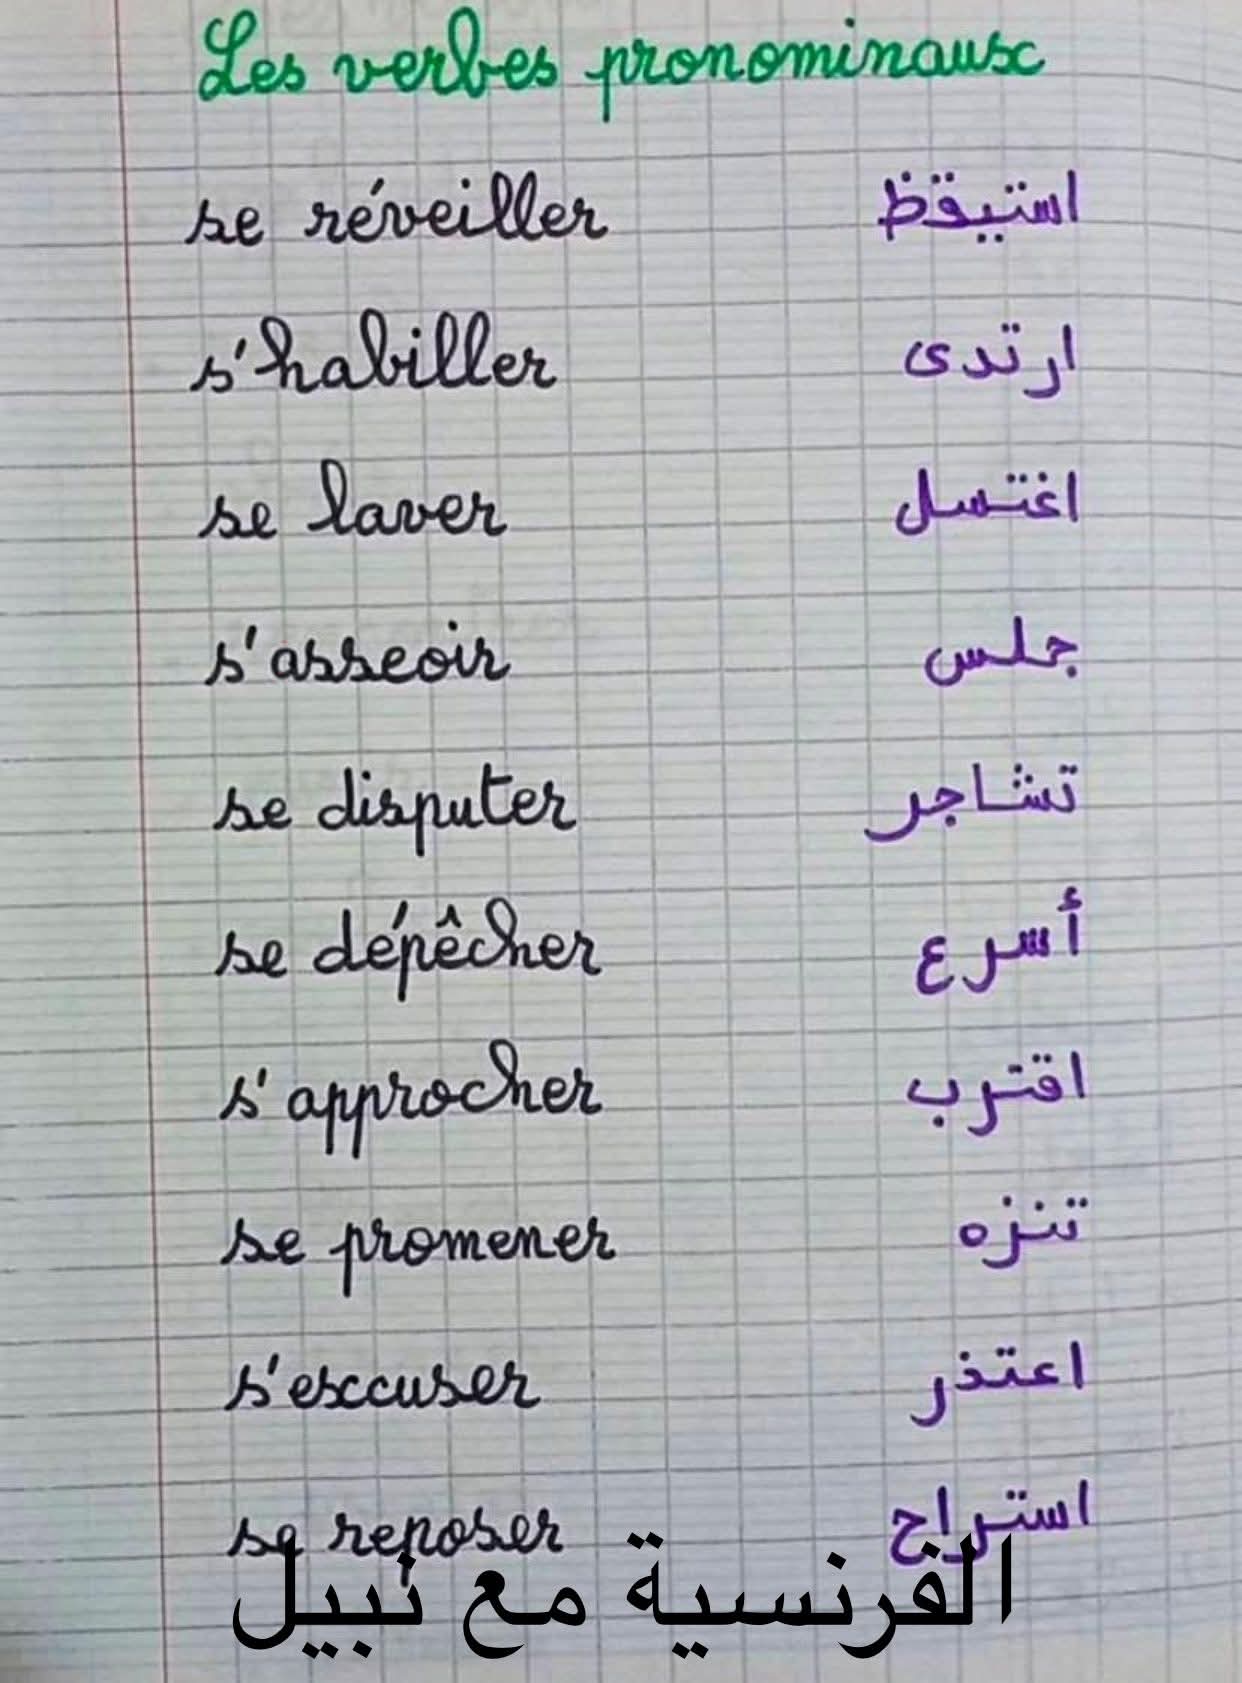 Les verbes pronominaux
se réveiller استيقظ
s'habiller ارتدى
se laver اغتسل
s'asseoir جلس
se disputer تشاجر
se dépêcher أسرع
s'approcher اقترب
se promener تنزه
s'excuser اعتذر
se reposer استراح
الفرنسية مع نبيل